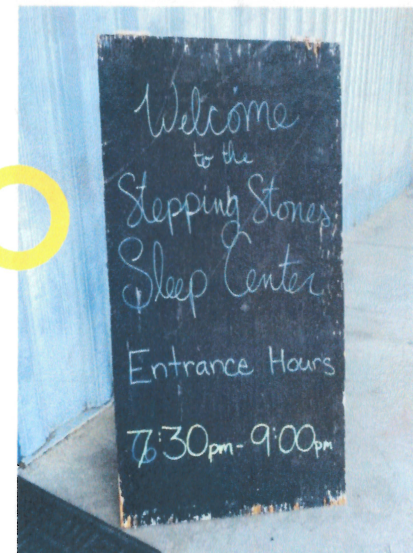 Welcome
to the
Stepping Stones
Sleep Center
Entrance Hours
7:30pm - 9:00pm